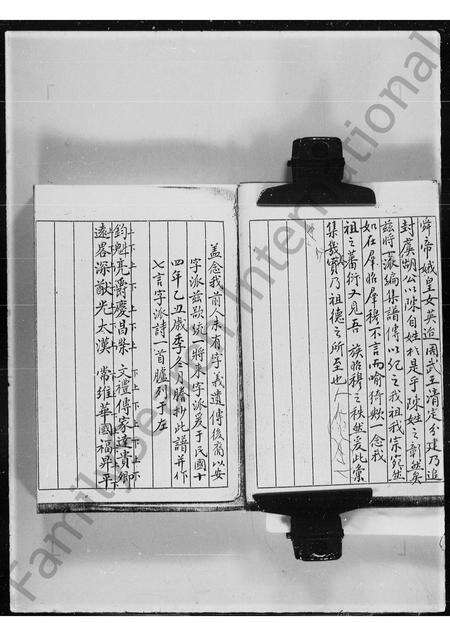 舜帝娥皇女英追國武王清定分建乃追
封虞胡公以陳自姓於是乎陳姓之彰然矣
茲時派編集譜傳以紀之我祖我宗宛然
如在犀昭犀穆不言而喻猗歟一念我
祖之蕃衍又見吾 族昭穆之秩然爰此彙
集幾實乃祖德之所至也
蓋念我前人未有字義遺傳後裔以安
字派茲歟統一將來字派爰于民國十
四年乙丑歲季 月謄抄此譜并作
七言字派詩一首臚列于左
鈞魁亮爵慶昌 文禮傳家達貴
遠畧深猷光太漢 常維華國福昇平
FamilySearch International